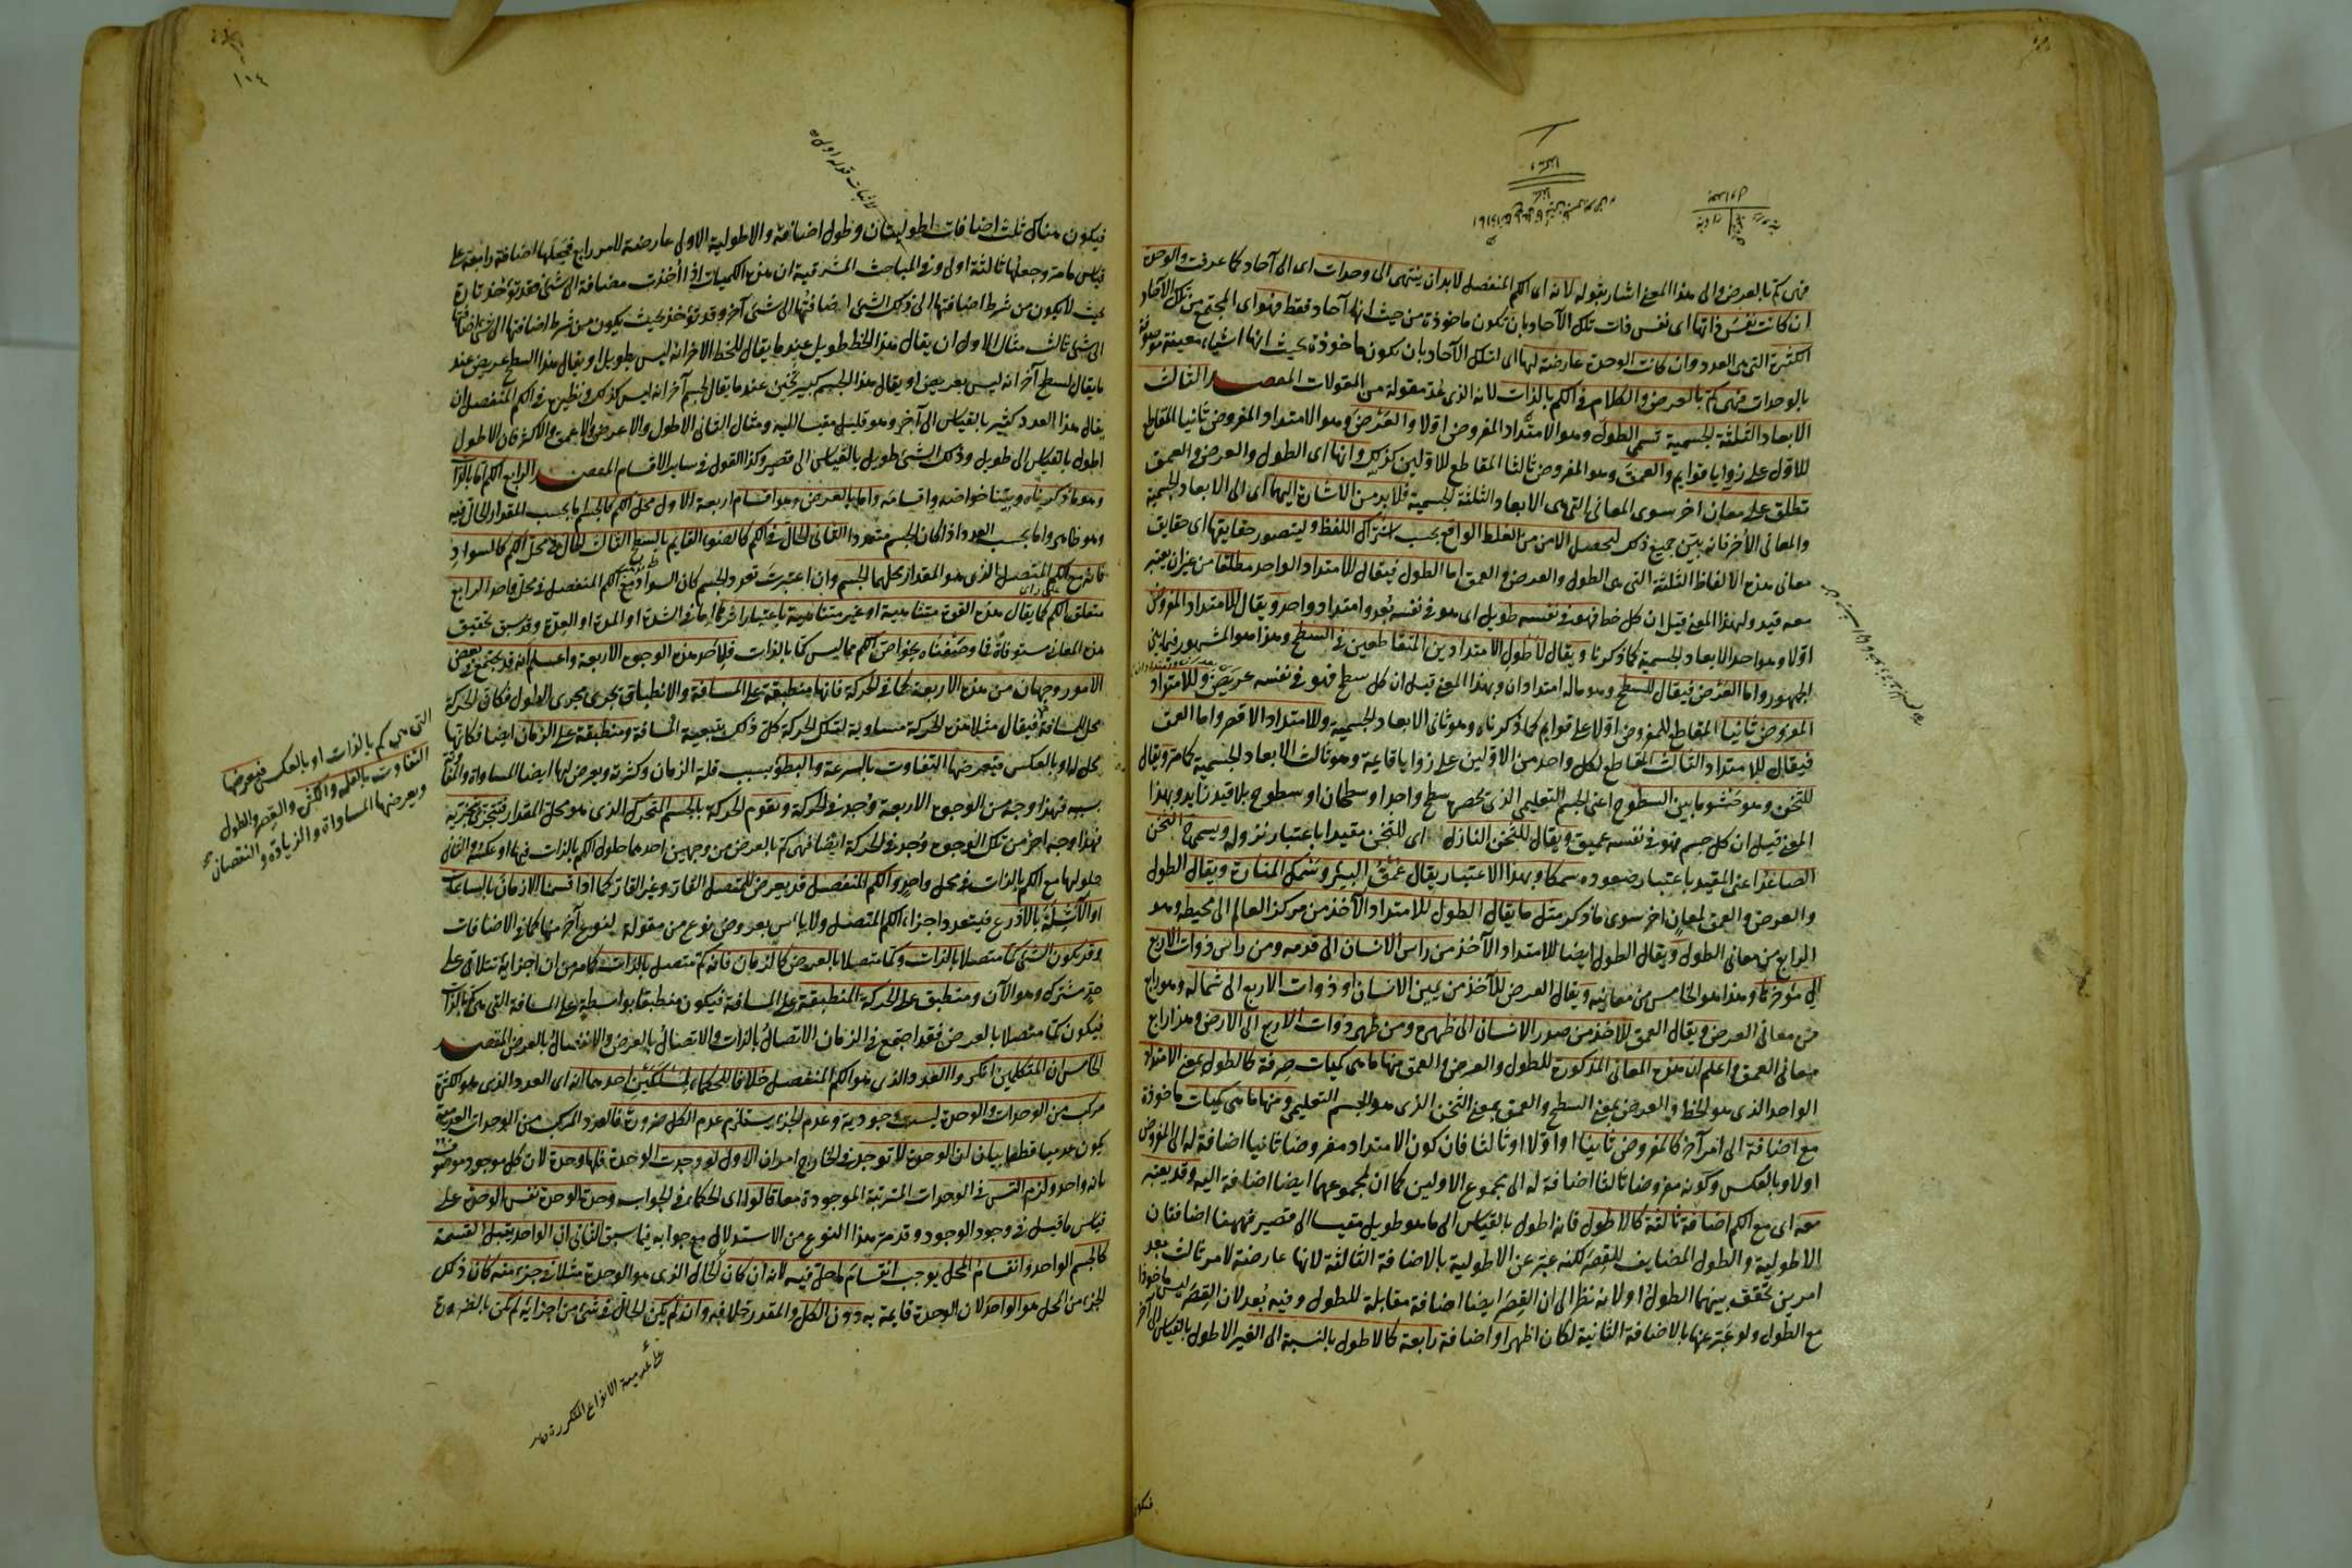 فهى كم بالعرض والى هذا المعنى اشار بقوله لانه اى الكم المنفصل لابد ان ينتهى الى وحدات اى الى آحاد كما عرفت والوحدة
ان كانت نفس ذاتها اى نفس ذات تلك الآحاد بان تكون ماخوذة من حيث انها آحاد فقط فهو اى المجتمع من تلك الآحاد
الكثرة التى هى العدد وان كانت الوحدة عارضة لها اى لتلك الآحاد بان يكون ماخوذة بحيث انها اشياء معينة موصوفة
بالوحدات فهى كم بالعرض والكلام فى الكم بالذات لانه الذى عد مقولة من المقولات المقصد الثالث
الابعاد الثلثة الجسمية تسمى الطول وهو الامتداد المفروض اولا والعرض وهو الامتداد المفروض ثانيا المقاطع
للاول على زوايا قوايم والعمق وهو المفروض ثالثا المقاطع للاولين كذلك وانها اى الطول والعرض والعمق
تطلق على معان اخر سوى المعانى التى هى الابعاد الثلثة الجسمية فلا بد من الاشارة اليها اى الى الابعاد الجسمية
والمعانى الأخر فانه يبين جميع ذلك ليحصل الامن من الغلط الواقع بحسب اشتراك اللفظ وليتصور حقايقها اى حقايق
معانى هذه الالفاظ الثلثة التى هى الطول والعرض والعمق اما الطول فيقال للامتداد الواحد مطلقا من غير ان يعتبر
معه قيد ولهذا المعنى قيل ان كل خط فهو فى نفسه طويل اى هو فى نفسه بعد وامتداد واحد ويقال للامتداد المفروض
اولا وهو احد الابعاد الجسمية كما ذكرنا ويقال لأطول الامتدادين المتقاطعين فى السطح وهذا هو المشهور فيما بين
الجمهور واما العرض فيقال للسطح وهو ماله امتدادان وبهذا المعنى قيل ان كل سطح فهو فى نفسه عريض وللامتداد
المفروض ثانيا المقاطع للمفروض اولا على قوايم كما ذكرناه وهو ثانى الابعاد الجسمية وللامتداد الاقصر واما العمق
فيقال للامتداد الثالث المقاطع لكل واحد من الاولين على زوايا قايمة وهو ثالث الابعاد الجسمية كما مر ويقال
للثخن وهو حشو ما بين السطوح اعنى الجسم التعليمى الذى يحصره سطح واحد او سطحان او سطوح بلا قيد زايد وبهذا
المعنى قيل ان كل جسم فهو فى نفسه عميق ويقال للثخن النازل اى للثخن مقيدا باعتبار نزوله ويسمى الثخن
الصاعد اعنى المقيد باعتبار صعوده سمكا وبهذا الاعتبار يقال عمق البير وسمك المنارة ويقال الطول
والعرض والعمق لمعان اخر سوى ما ذكر مثل ما يقال الطول للامتداد الآخذ من مركز العالم الى محيطه وهو
الرابع من معانى الطول ويقال الطول ايضا للامتداد الآخذ من راس الانسان الى قدمه ومن راس ذوات الاربع
الى مؤخرها وهذا هو الخامس من معانيه ويقال العرض للآخذ من يمين الانسان او ذوات الاربع الى شماله وهو رابع
من معانى العرض ويقال العمق للآخذ من صدر الانسان الى ظهره ومن ظهر ذوات الاربع الى الارض وهذا رابع
معانى العمق واعلم ان هذه المعانى المذكورة للطول والعرض والعمق منها ما هى كميات صرفة كالطول بمعنى الامتداد
الواحد الذى هو الخط والعرض بمعنى السطح والعمق بمعنى الثخن الذى هو الجسم التعليمى ومنها ما هى كميات ماخوذة
مع اضافة الى امر آخر كالمفروض ثانيا او اولا او ثالثا فان كون الامتداد مفروضا ثانيا اضافة له الى المفروض
اولا وبالعكس وكونه مفروضا ثالثا اضافة له الى مجموع الاولين كما ان لمجموعهما ايضا اضافة اليه وقد يعتبر
معه اى مع الكم اضافة ثالثة كالاطول فانه اطول بالقياس الى ما هو طويل مقيسا الى قصير فههنا اضافتان
الاطولية والطول المضايف للقصر لكنه عبر عن الاطولية بالاضافة الثالثة لانها عارضة لامر ثالث بعد
امرين تحقق بينهما الطول اولا نظرا الى ان القصر ايضا اضافة مقابلة للطول وفيه بعد لان القصر ليس ماخوذا
مع الطول ولو عبر عنها بالاضافة الثانية لكان اظهر او اضافة رابعة كالاطول بالنسبة الى الغير الاطول بالقياس الى آخر
فيكون
١٠٤
لاثبات قوله اولى
فيكون هناك ثلث اضافات اطوليتان وطول اضافية والاطولية الاولى عارضة لامر رابع فيجعلها اضافة رابعة على
قياس ما مر وجعلها ثالثة اولى وفى المباحث المشرقية ان هذه الكميات اذا أخذت مضافة الى شئ فقد تؤخذ تارة
بحيث لا يكون من شرط اضافتها الى ذلك الشئ اضافتها الى شئ آخر وقد تؤخذ بحيث يكون من شرط اضافتها الى شئ اضافتها
الى شئ ثالث مثال الاول ان يقال هذا الخط طويل عند ما يقال للخط الاخر انه ليس بطويل او يقال هذا السطح عريض عند
ما يقال لسطح آخر انه ليس بعريض او يقال هذا الجسم كبير ثخين عند ما يقال لجسم آخر انه ليس كذلك ونظيره فى الكم المنفصل ان
يقال هذا العدد كثير بالقياس الى آخر وهو قليل مقيسا اليه ومثال الثانى الاطول والاعرض والاعمق والاكثر فان الاطول
اطول بالقياس الى طويل وذلك الشئ طويل بالقياس الى قصير وكذا القول فى ساير الاقسام المقصد الرابع الكم اما بالذات
وهو ما ذكرناه وبينا خواصه واقسامه واما بالعرض وهو اقسام اربعة الاول محل الكم كالجسم اما بحسب المقدار الحال فيه
وهو ظاهر واما بحسب العدد اذا كان الجسم متعددا الثانى الحال فى الكم كالضوء القايم بالسطح الثالث الحال فى محل الكم كالسواد
فانه مع الكم المتصل الذى هو المقدار محلهما الجسم وان اعتبرت تعدد الجسم كان السواد مع الكم المنفصل فى محل واحد الرابع
متعلق الكم كما يقال هذه القوة متناهية او غير متناهية باعتبار اثرها اما فى الشدة او المدة او العدة وقد سبق تحقيق
هذه المعانى مستوفاة فاذا وصفناه بخواص الكم مما ليس كما بالذات فلأحد هذه الوجوه الاربعة واعلم انه قد يجتمع فى بعض
الامور وجهان من هذه الاربعة كما فى الحركة فانها منطبقة على المسافة والانطباق يجرى مجرى الحلول فكان الحركة
محل للمسافة فيقال مثلا هذه الحركة مساوية لتلك الحركة كل ذلك بتبعية المسافة ومنطبقة على الزمان ايضا فكانها
محل له او بالعكس فيعرضها التفاوت بالسرعة والبطؤ بسبب قلة الزمان وكثرته ويعرض لها ايضا المساواة والمفاوتة
بسببه فهذا وجه من الوجوه الاربعة وجد فى الحركة وتقوم الحركة بالجسم المتحرك الذى هو محل المقدار فتتجزى بتجزيه
فهذا وجه آخر من تلك الوجوه وجد فى الحركة ايضا فهى كم بالعرض من وجهين احدهما حلول الكم بالذات فيها او عكسه والثانى
حلولها مع الكم بالذات فى محل واحد والكم المنفصل قد يعرض للمتصل القار وغير القار كما اذا قسمنا الازمان بالساعات
او بالاذرع فيتعدد اجزاء الكم المتصل ولا باس بعروض نوع من مقولة لنوع آخر منها كما فى الاضافات
وقد يكون الشئ كما متصلا بالذات وكما متصلا بالعرض كالزمان فانه كم متصل بالذات كما مر من ان اجزايه تتلاقى على
حد مشترك وهو الآن ومنطبق على الحركة المنطبقة على المسافة فيكون منطبقا بواسطة على المسافة التى هى كم بالذات
فيكون كما متصلا بالعرض فقد اجتمع فى الزمان الاتصال بالذات والاتصال بالعرض والانفصال بالعرض المقصد
الخامس ان المتكلمين انكروا العدد الذى هو الكم المنفصل خلافا للحكماء لمسلكين احدهما انه اى العدد الذى هو الكثرة
مركب من الوحدات والوحدة ليست وجودية وعدم الجزء يستلزم عدم الكل ضرورة فالعدد المركب من الوحدات العدمية
يكون عدميا قطعا بيان ان الوحدة لا توجد فى الخارج امران الاول لو وجدت الوحدة فلها وحدة لان كل موجود موصوف
بانه واحد ولزم التس فى الوحدات المترتبة الموجودة معا قالوا اى الحكماء فى الجواب وحدة الوحدة نفس الوحدة على
قياس ما قيل فى وجود الوجود وقد مر هذا النوع من الاستدلال مع جوابه فيما سبق الثانى ان الواحد يقبل القسمة
كالجسم الواحد وانقسام المحل يوجب انقسام ما حل فيه لانه ان كان الحال الذى هو الوحدة مثلا فى جزء منه كان ذلك
الجزء من المحل هو الواحد لان الوحدة قايمة به دون الكل والمقدر خلافه وان لم يكن الحال فى شئ من اجزايه لم يكن بالضرورة
التى هى كم بالذات او بالعكس فيعرضها
التفاوت بالقلة والكثرة والقصر والطول
ويعرضها المساواة والزيادة والنقصان
على عدمية الانواع المتكررة